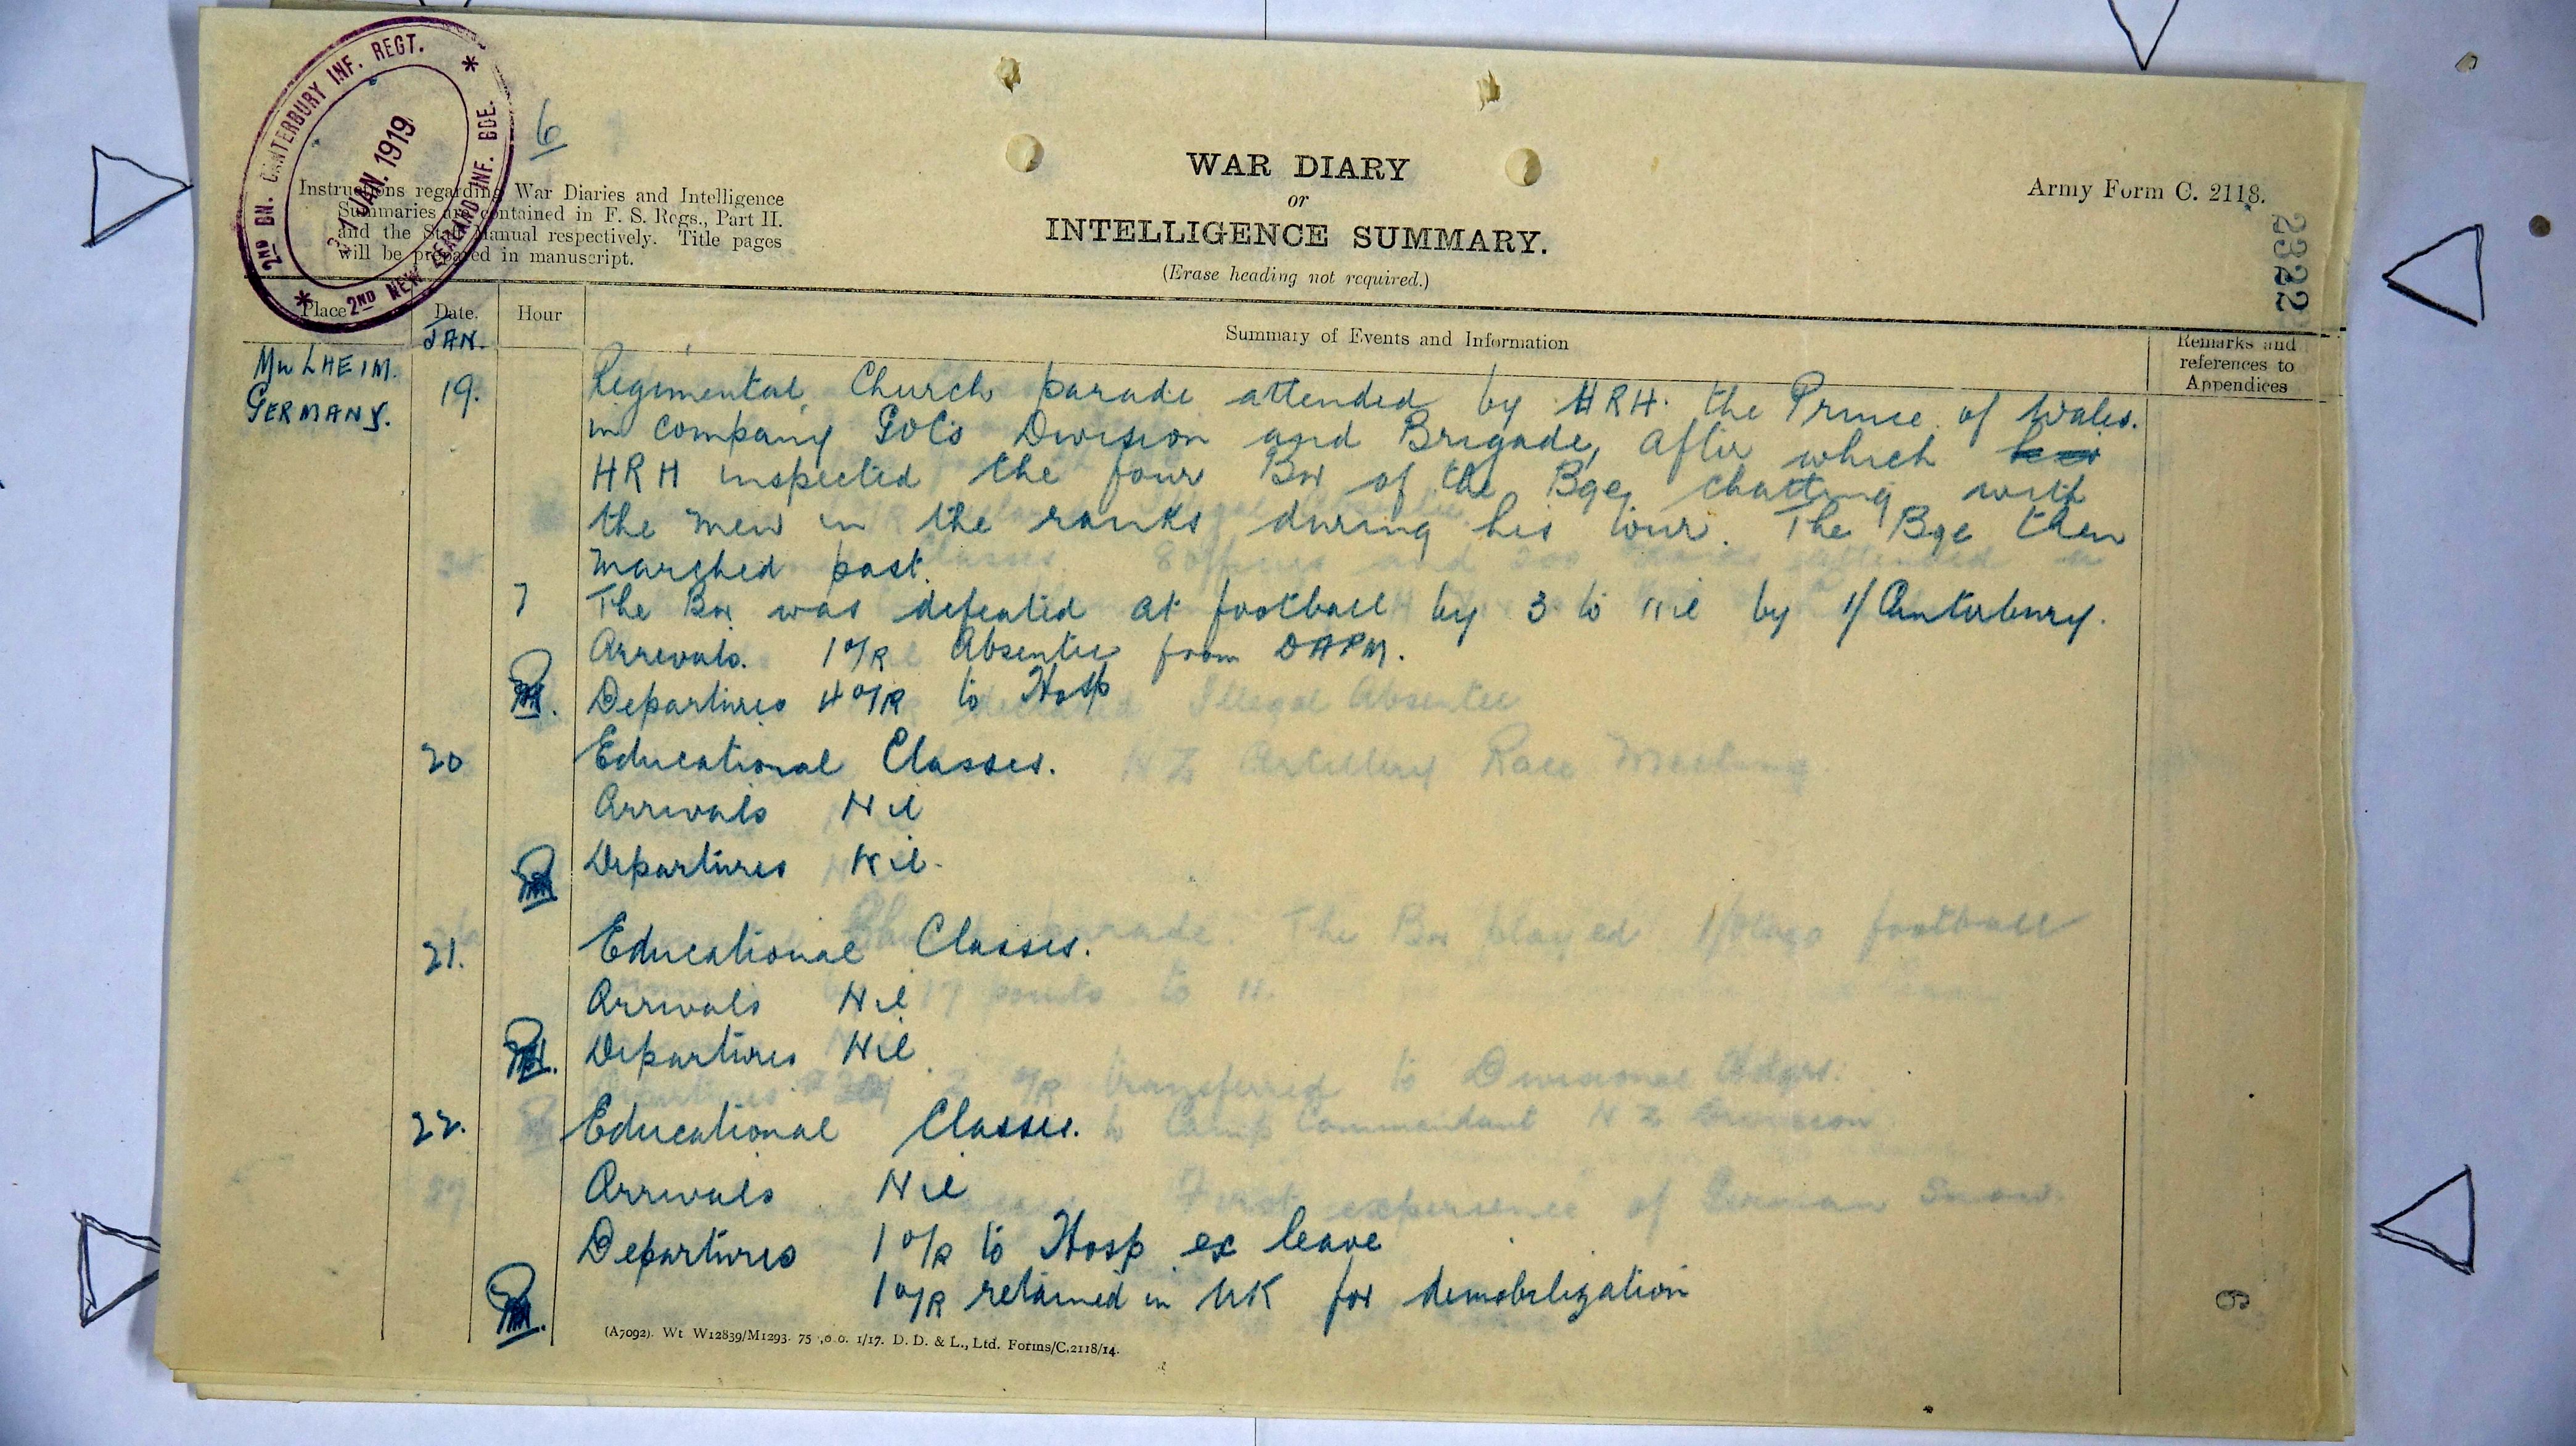 2ND BN. CANTERBURY INF. REGT.
31 JAN. 1919
2ND NEW ZEALAND INF. BDE.
6
Instructions regarding War Diaries and Intelligence
Summaries are contained in F. S. Regs., Part II.
and the Staff Manual respectively. Title pages
will be prepared in manuscript.
WAR DIARY
or
INTELLIGENCE SUMMARY.
(Erase heading not required.)
Army Form C. 2118.
23222
Place Date. Hour Summary of Events and Information Remarks and references to Appendices
JAN.
MULHEIM. GERMANY. 19. Regimental Church parade attended by HRH. the Prince of Wales.
in company GOCs Division and Brigade, after which
HRH inspected the four Bn of the Bge, chatting with
the men in the ranks during his tour. The Bge then
marched past.
The Bn was defeated at football by 3 to nil by 1/Canterbury.
Arrivals. 1 O/R Absentee from DAPM.
Departures 4 O/R to Hosp
20 Educational Classes.
Arrivals Nil
Departures Nil.
21. Educational Classes.
Arrivals Nil
Departures Nil.
22. Educational Classes.
Arrivals Nil
Departures 1 O/R to Hosp ex leave
1 O/R retained in UK for demobilization
(A7092). Wt W12839/M1293. 75 ,0 0. 1/17. D. D. & L., Ltd. Forms/C.2118/14.